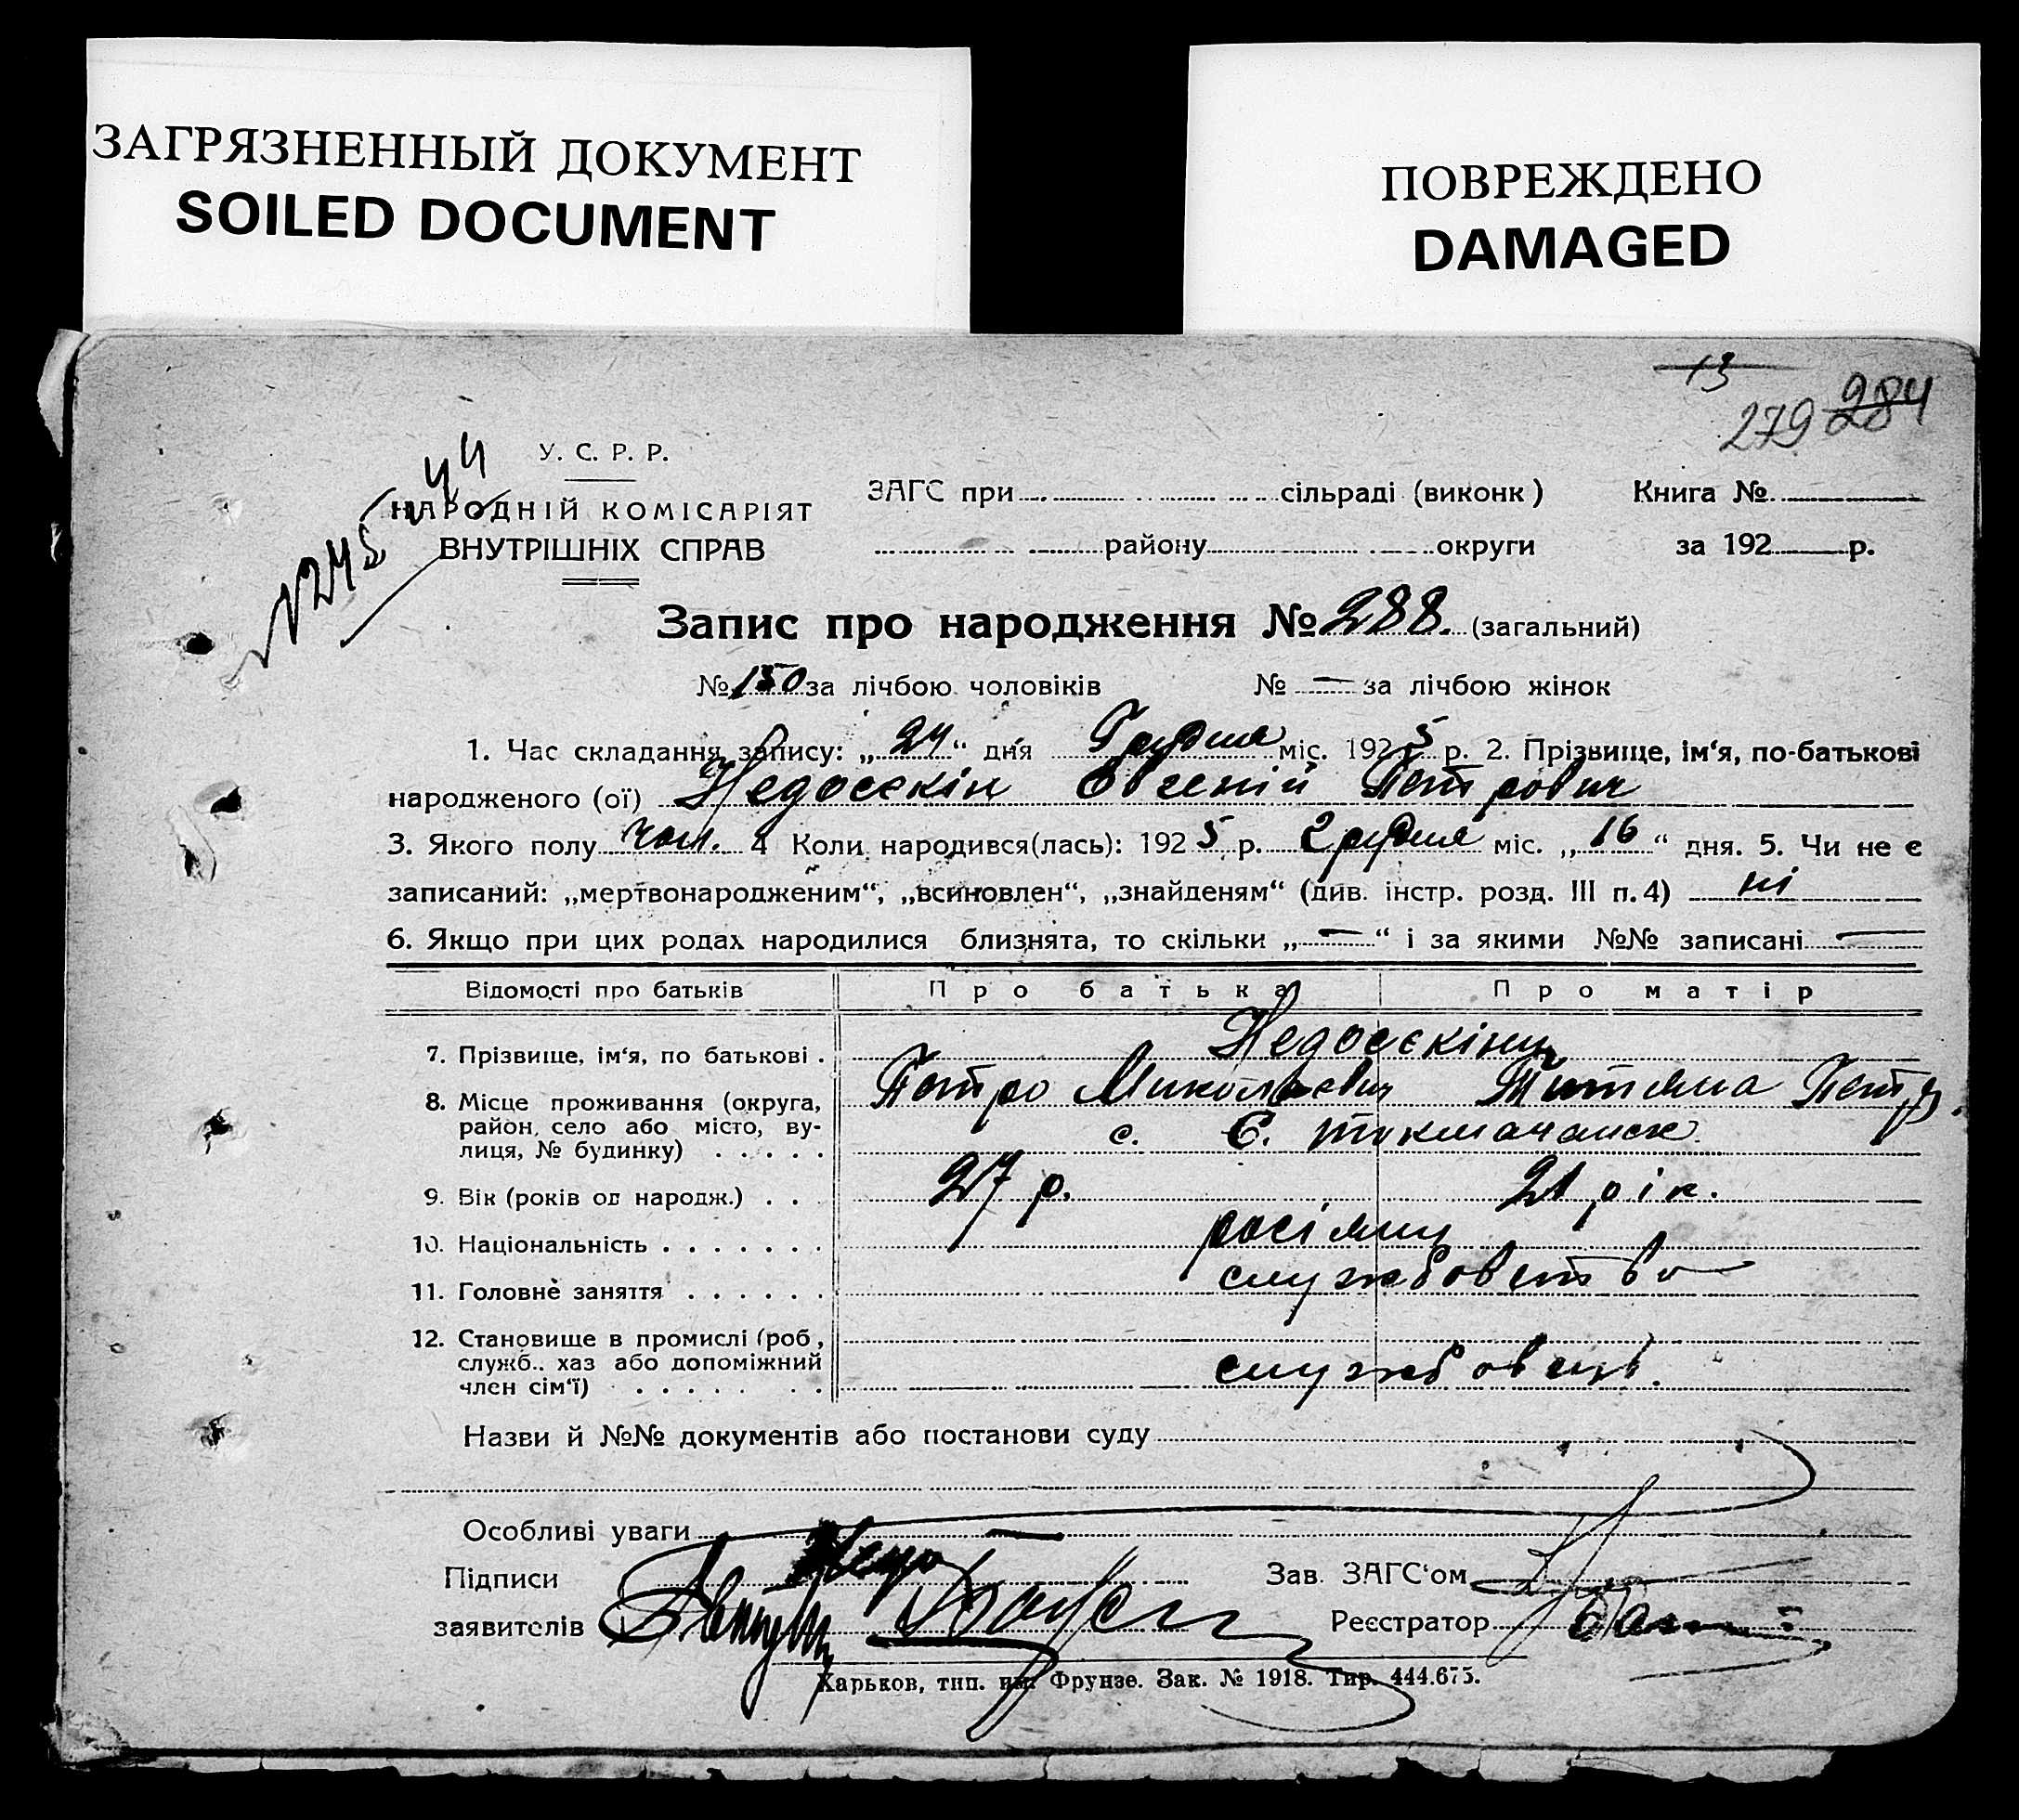 ЗАГРЯЗНЕННЫЙ ДОКУМЕНТ
SOILED DOCUMENT
ПОВРЕЖДЕНО
DAMAGED
13
279 284
У. С. Р. Р.
НАРОДНІЙ КОМІСАРІЯТ
ВНУТРІШНІХ СПРАВ
ЗАГС при сільраді (виконк) Книга №
району округи за 192 р.
Запис про народження № 288. (загальний)
№ 150 за лічбою чоловіків № — за лічбою жінок
1. Час складання запису: „24“ дня Грудня міс. 1925 р. 2. Прізвище, ім‘я, по-батькові
народженого (ої) Недосєкін Євгеній Петрович
3. Якого полу чол. 4 Коли народився(лась): 1925 р. Грудня міс. „16“ дня. 5. Чи не є
записаний: „мертвонародженим“, „всиновлен“, „знайденям“ (див. інстр. розд. III п. 4) ні
6. Якщо при цих родах народилися близнята, то скільки „—“ і за якими №№ записані —
Відомості про батьків Про батька Про матір
7. Прізвище, ім‘я, по батькові . Недосєкіни
8. Місце проживання (округа, Петро Миколаєвич Титяна Петр.
район, село або місто, ву-
лиця, № будинку) . . . . . с. Є. Токмачанск.
9. Вік (років од народж.) . . . 27 р. 21 рік.
10. Національність . . . . . . . росіяни
11. Головне заняття . . . . . . службовство
12. Становище в промислі (роб.,
служб., хаз або допоміжний
член сім‘ї) . . . . . . . службовці.
Назви й №№ документів або постанови суду
Особливі уваги —
Підписи Зав. ЗАГС‘ом
заявителів Реєстратор
Харьков, тип. им. Фрунзе. Зак. № 1918. Тир. 444.675.